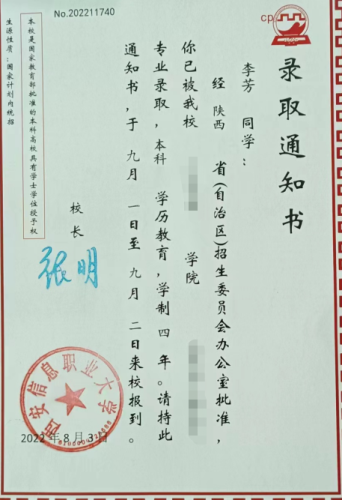 No.202211740
cp
录取通知书
李芳 同学：
经 陕西 省(自治区)招生委员会办公室批准，
你已被我校 学院
专业录取，本科 学历教育，学制 四 年。请持此
通知书，于 九月 一日至 九月 二日来校报到。
校长
张明
西安信息职业大学
2022年8月3日
本校是国家教育部批准的本科高校具有学士学位授予权
生源性质：国家计划内统招